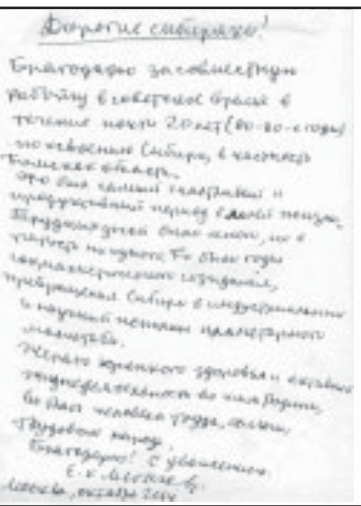 Дорогие сибиряки!
Благодарю за совместную
работу в советское время в
течение почти 20 лет (60-80-е годы)
по освоению Сибири, в частности
Томской области.
Это был самый счастливый и
продуктивный период в моей жизни.
Трудностей было много, но я
Это были годы
созидания,
превращения Сибири в индустриальный
и научный планетарного
масштаба.
Желаю крепкого здоровья и активной
жизнедеятельности во имя Родины,
во имя человека труда,
Трудовой народ.
Благодарю! С уважением
Е. К. Лигачев.
Москва, октябрь